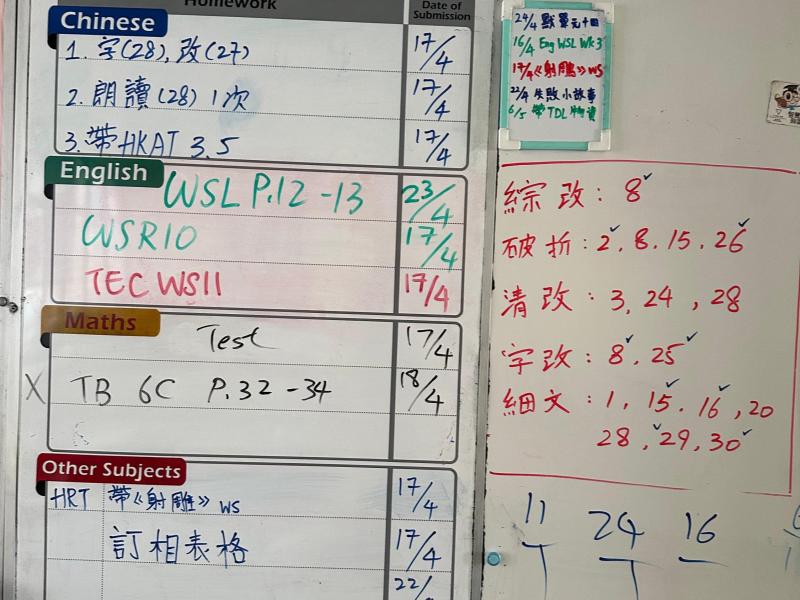 Homework Date of Submission
Chinese
1. 字(28), 改(27) 17/4
2. 朗讀(28) 1次 17/4
3. 帶HKAT 3.5 17/4
English
WSL P.12-13 23/4
WSR10 17/4
TEC WS11 17/4
Maths
Test 17/4
X TB 6C P.32-34 18/4
Other Subjects
HRT 帶《射雕》WS 17/4
訂相表格 17/4
22/
24/4 默單元十四
16/4 Eng WSL Wk3
17/4《射雕》WS
22/4 失敗小故事
6/5 帶TDL物資
綜改: 8✓
破折: 2✓, 8, 15, 26✓
清改: 3, 24, 28
字改: 8✓, 25✓
細文: 1, 15✓, 16✓, 20
28, 29✓, 30✓
11 24 16